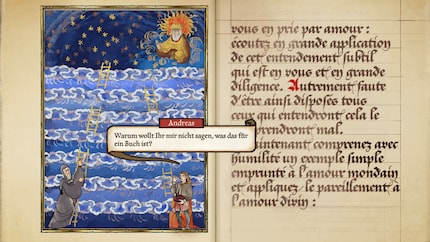 Andreas
Warum wollt Ihr mir nicht sagen, was das für
ein Buch ist?
vous en prie par amour :
écoutez en grande application
de cet entendement subtil
qui est en vous et en grande
diligence. Autrement faute
d'être ainsi disposés tous
ceux qui entendront cela le
prendront mal.
intenant comprenez avec
humilité un exemple simple
emprunté à l'amour mondain
et appliquez le pareillement à
l'amour divin :